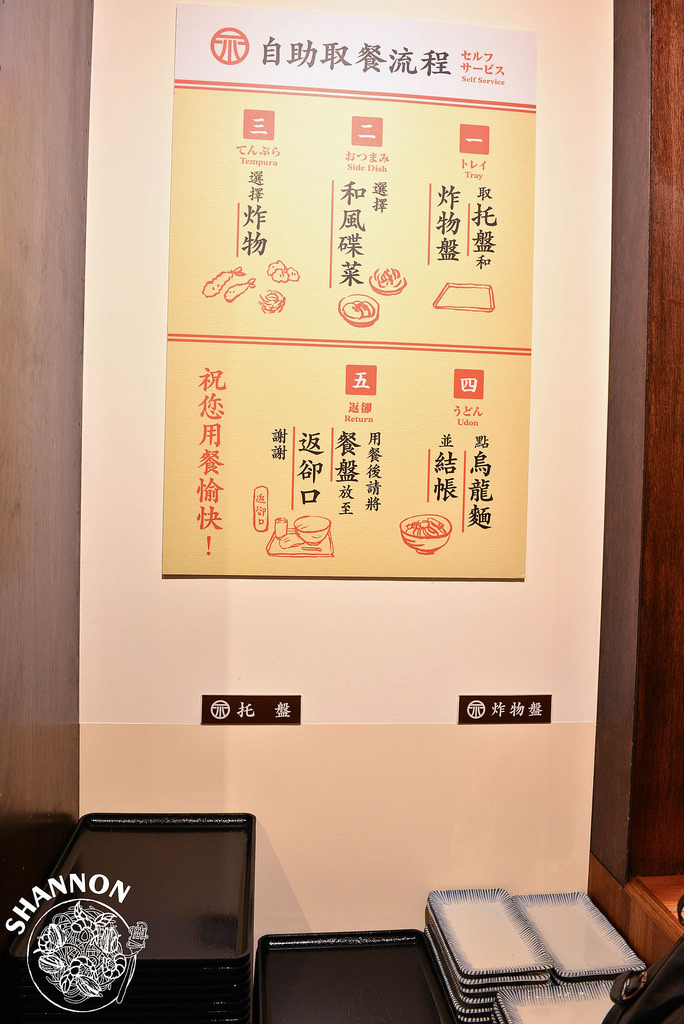 自助取餐流程
セルフ
サービス
Self Service
一
トレイ
Tray
取托盤和
炸物盤
二
おつまみ
Side Dish
選擇
和風碟菜
三
てんぷら
Tempura
選擇炸物
四
うどん
Udon
點烏龍麵
並結帳
五
返卻
Return
用餐後請將
餐盤放至
返卻口
謝謝
返卻口
祝您用餐愉快！
托盤
炸物盤
SHANNON